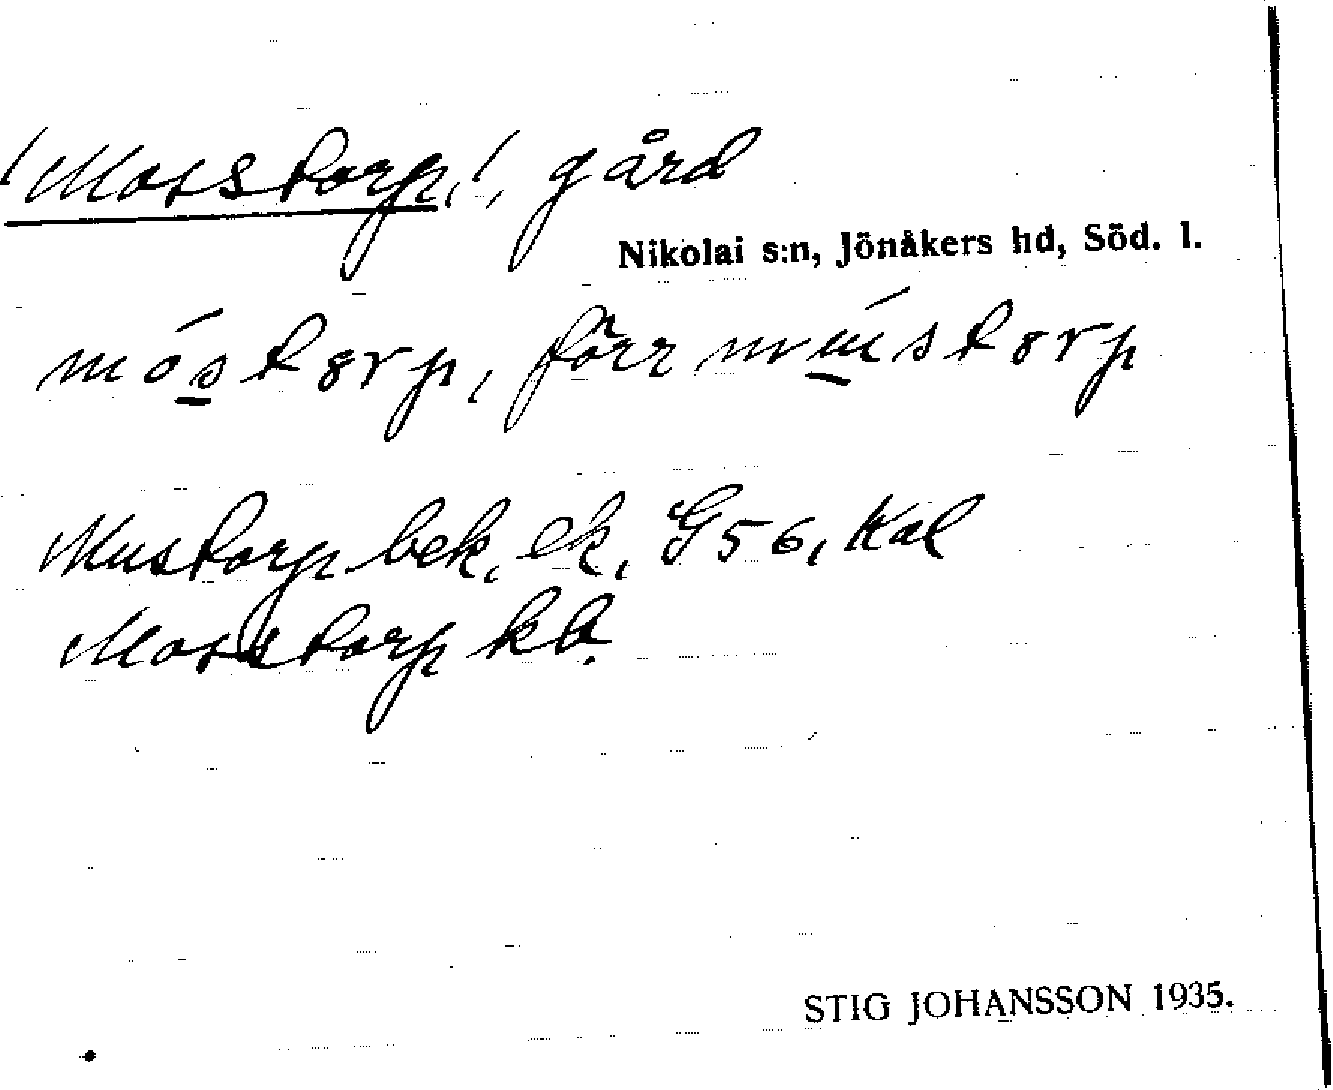 (Mosstorp,), gård
Nikolai s:n, Jönåkers hd, Söd. l.
móstørp, förr mústørp
Mustorp bek, ek, G56, Kal
Mosstorp kb.
STIG JOHANSSON 1935.